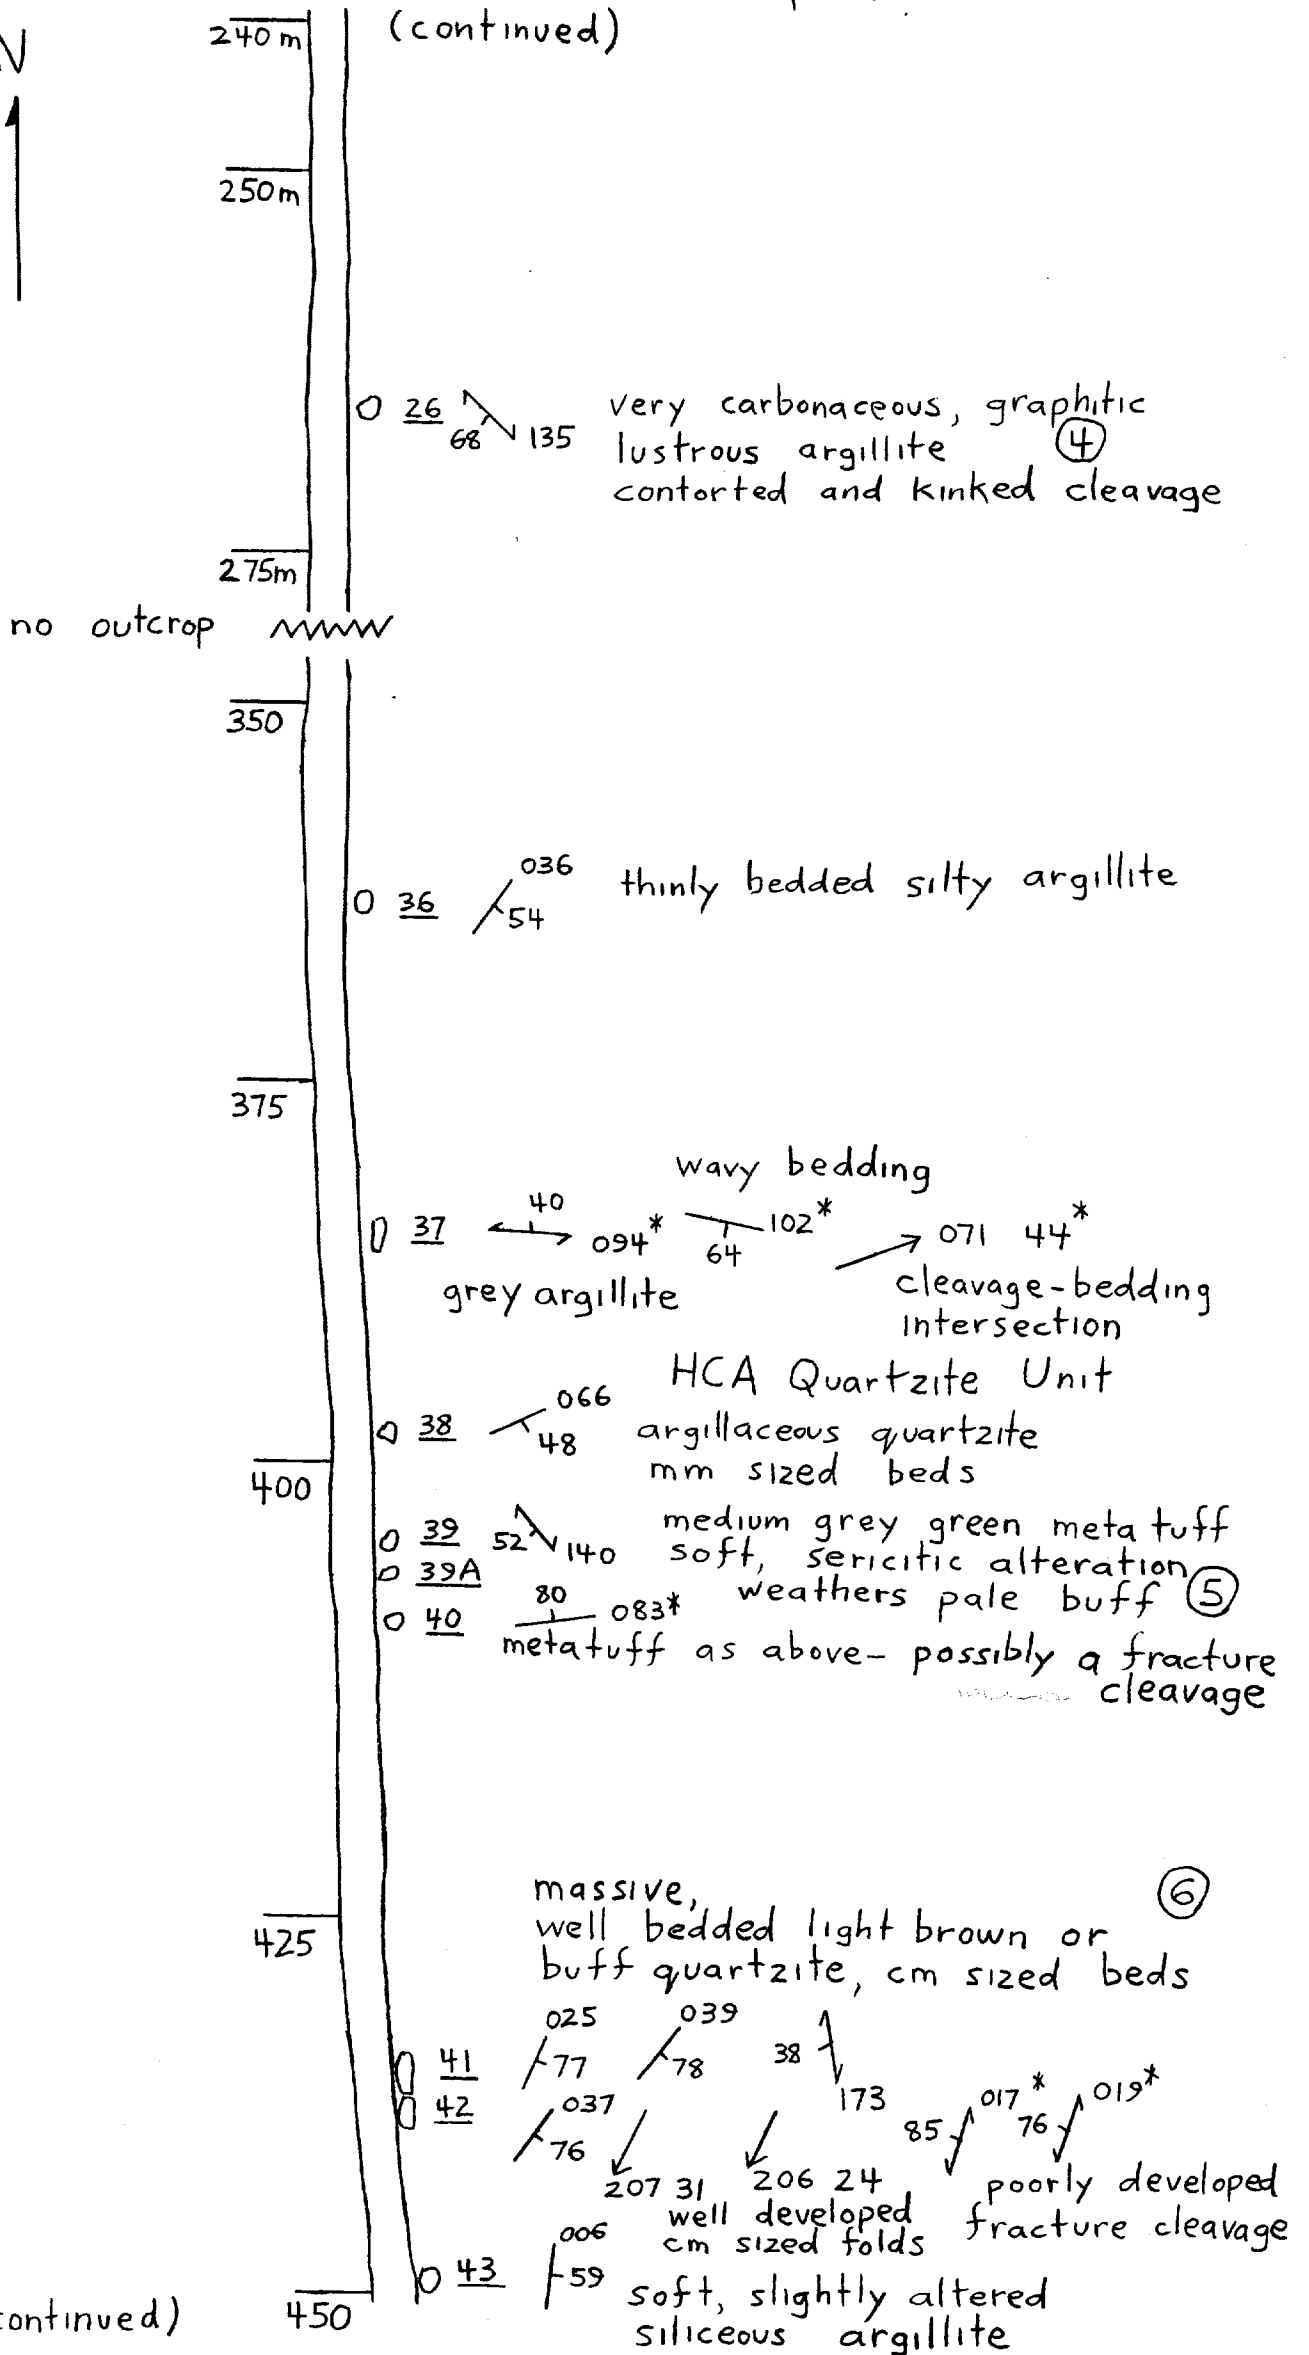 240 m (continued)
N
250 m
26 68 135 very carbonaceous, graphitic
lustrous argillite 4
contorted and kinked cleavage
275m
no outcrop
350
036
36 54 thinly bedded silty argillite
375
wavy bedding
37 40 094* 64 102* 071 44*
grey argillite cleavage-bedding
intersection
HCA Quartzite Unit
066
38 48 argillaceous quartzite
mm sized beds
400
39 52 140 medium grey green meta tuff
39A soft, sericitic alteration
weathers pale buff 5
40 80 083*
metatuff as above- possibly a fracture
cleavage
massive, 6
425 well bedded light brown or
buff quartzite, cm sized beds
025 039
41 77 78 38 173
42 037 76 85 017* 76 019*
207 31 206 24 poorly developed
well developed fracture cleavage
cm sized folds
006
43 59 soft, slightly altered
siliceous argillite
450
continued)